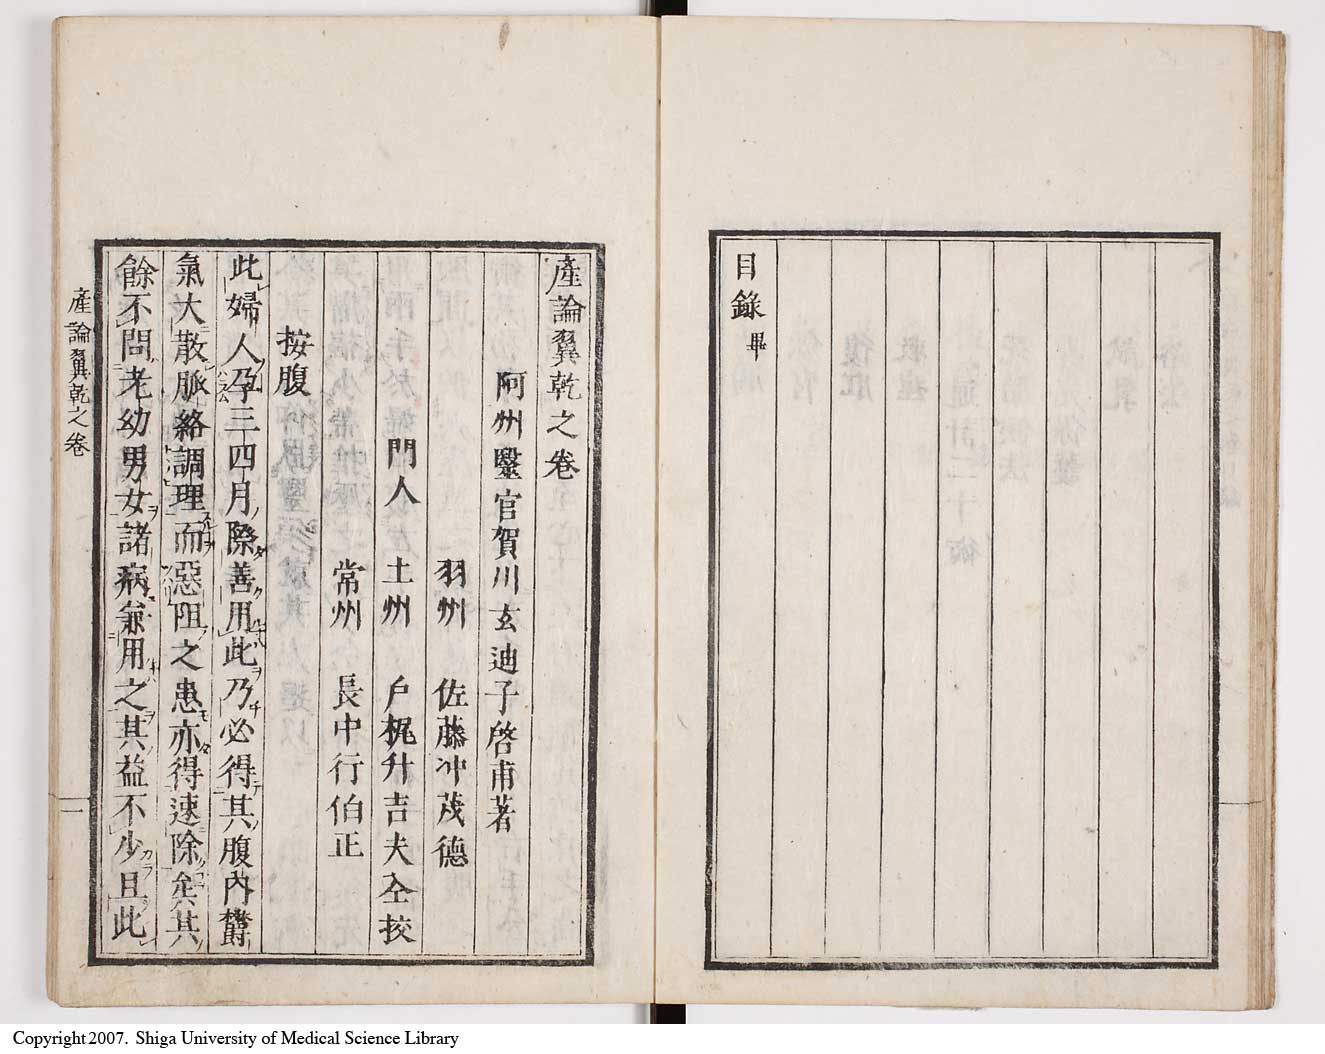 目錄畢
產論翼乾之卷
阿州毉官賀川玄迪子啓甫著
羽州 佐藤冲茂德
門人 土州 戶梶升吉夫仝挍
常州 長中行伯正
按腹
此婦人孕三四月際善用此乃必得其腹內欝
氣大散脈絡調理而惡阻之患亦得速除矣其
餘不問老幼男女諸病兼用之其益不少且此
產論翼乾之卷
一
Copyright 2007. Shiga University of Medical Science Library